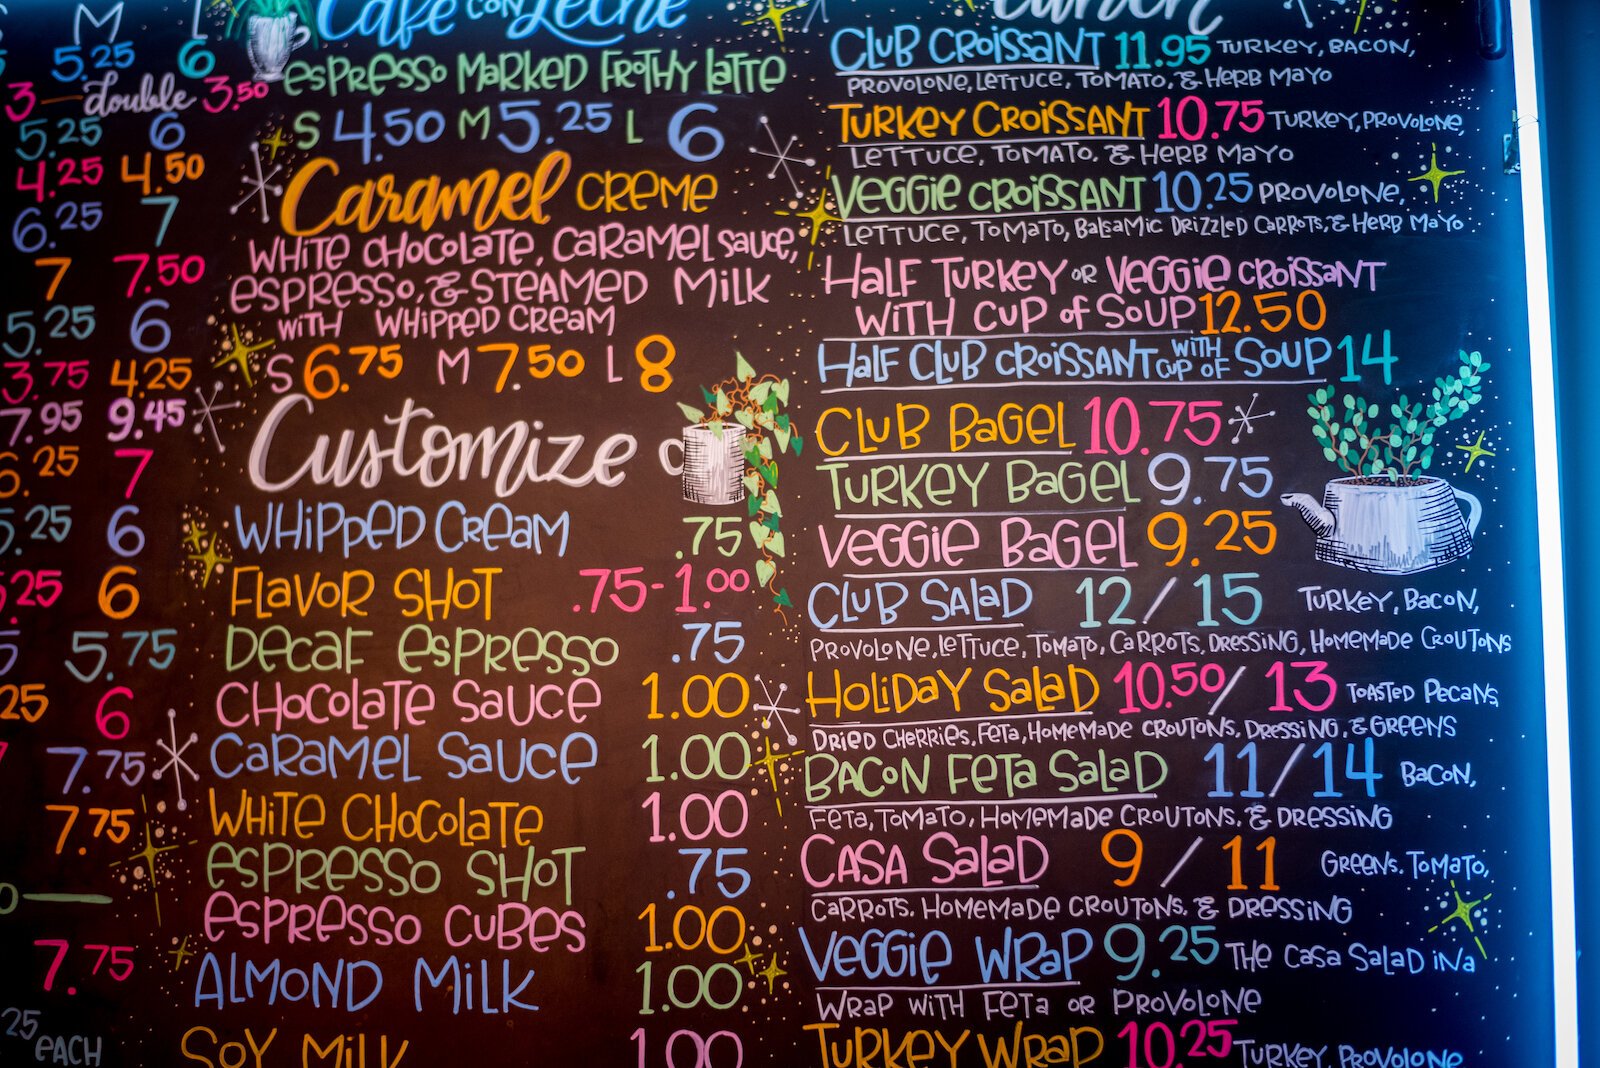 M L
5.25 6
3 double 3.50
5.25 6
4.25 4.50
6.25 7
7 7.50
5.25 6
3.75 4.25
7.95 9.45
6.25 7
5.25 6
25 6
5.75
25 6
7.75
7.75
7.75
25 EACH
Café con Leche
Espresso Marked Frothy Latte
S 4.50 M 5.25 L 6
Caramel Creme
White Chocolate, Caramel Sauce,
Espresso, & Steamed Milk
with Whipped Cream
S 6.75 M 7.50 L 8
Customize
Whipped Cream .75
Flavor Shot .75-1.00
Decaf Espresso .75
Chocolate Sauce 1.00
Caramel Sauce 1.00
White Chocolate 1.00
Espresso Shot .75
Espresso Cubes 1.00
Almond Milk 1.00
Soy Milk 1.00
Lunch
Club Croissant 11.95 Turkey, Bacon,
Provolone, Lettuce, Tomato, & Herb Mayo
Turkey Croissant 10.75 Turkey, Provolone,
Lettuce, Tomato, & Herb Mayo
Veggie Croissant 10.25 Provolone,
Lettuce, Tomato, Balsamic Drizzled Carrots, & Herb Mayo
Half Turkey or Veggie Croissant
with Cup of Soup 12.50
Half Club Croissant with Cup of Soup 14
Club Bagel 10.75
Turkey Bagel 9.75
Veggie Bagel 9.25
Club Salad 12/15 Turkey, Bacon,
Provolone, Lettuce, Tomato, Carrots, Dressing, Homemade Croutons
Holiday Salad 10.50/13 Toasted Pecans,
Dried Cherries, Feta, Homemade Croutons, Dressing, & Greens
Bacon Feta Salad 11/14 Bacon,
Feta, Tomato, Homemade Croutons, & Dressing
Casa Salad 9/11 Greens, Tomato,
Carrots, Homemade Croutons, & Dressing
Veggie Wrap 9.25 The Casa Salad in a
Wrap with Feta or Provolone
Turkey Wrap 10.25 Turkey, Provolone